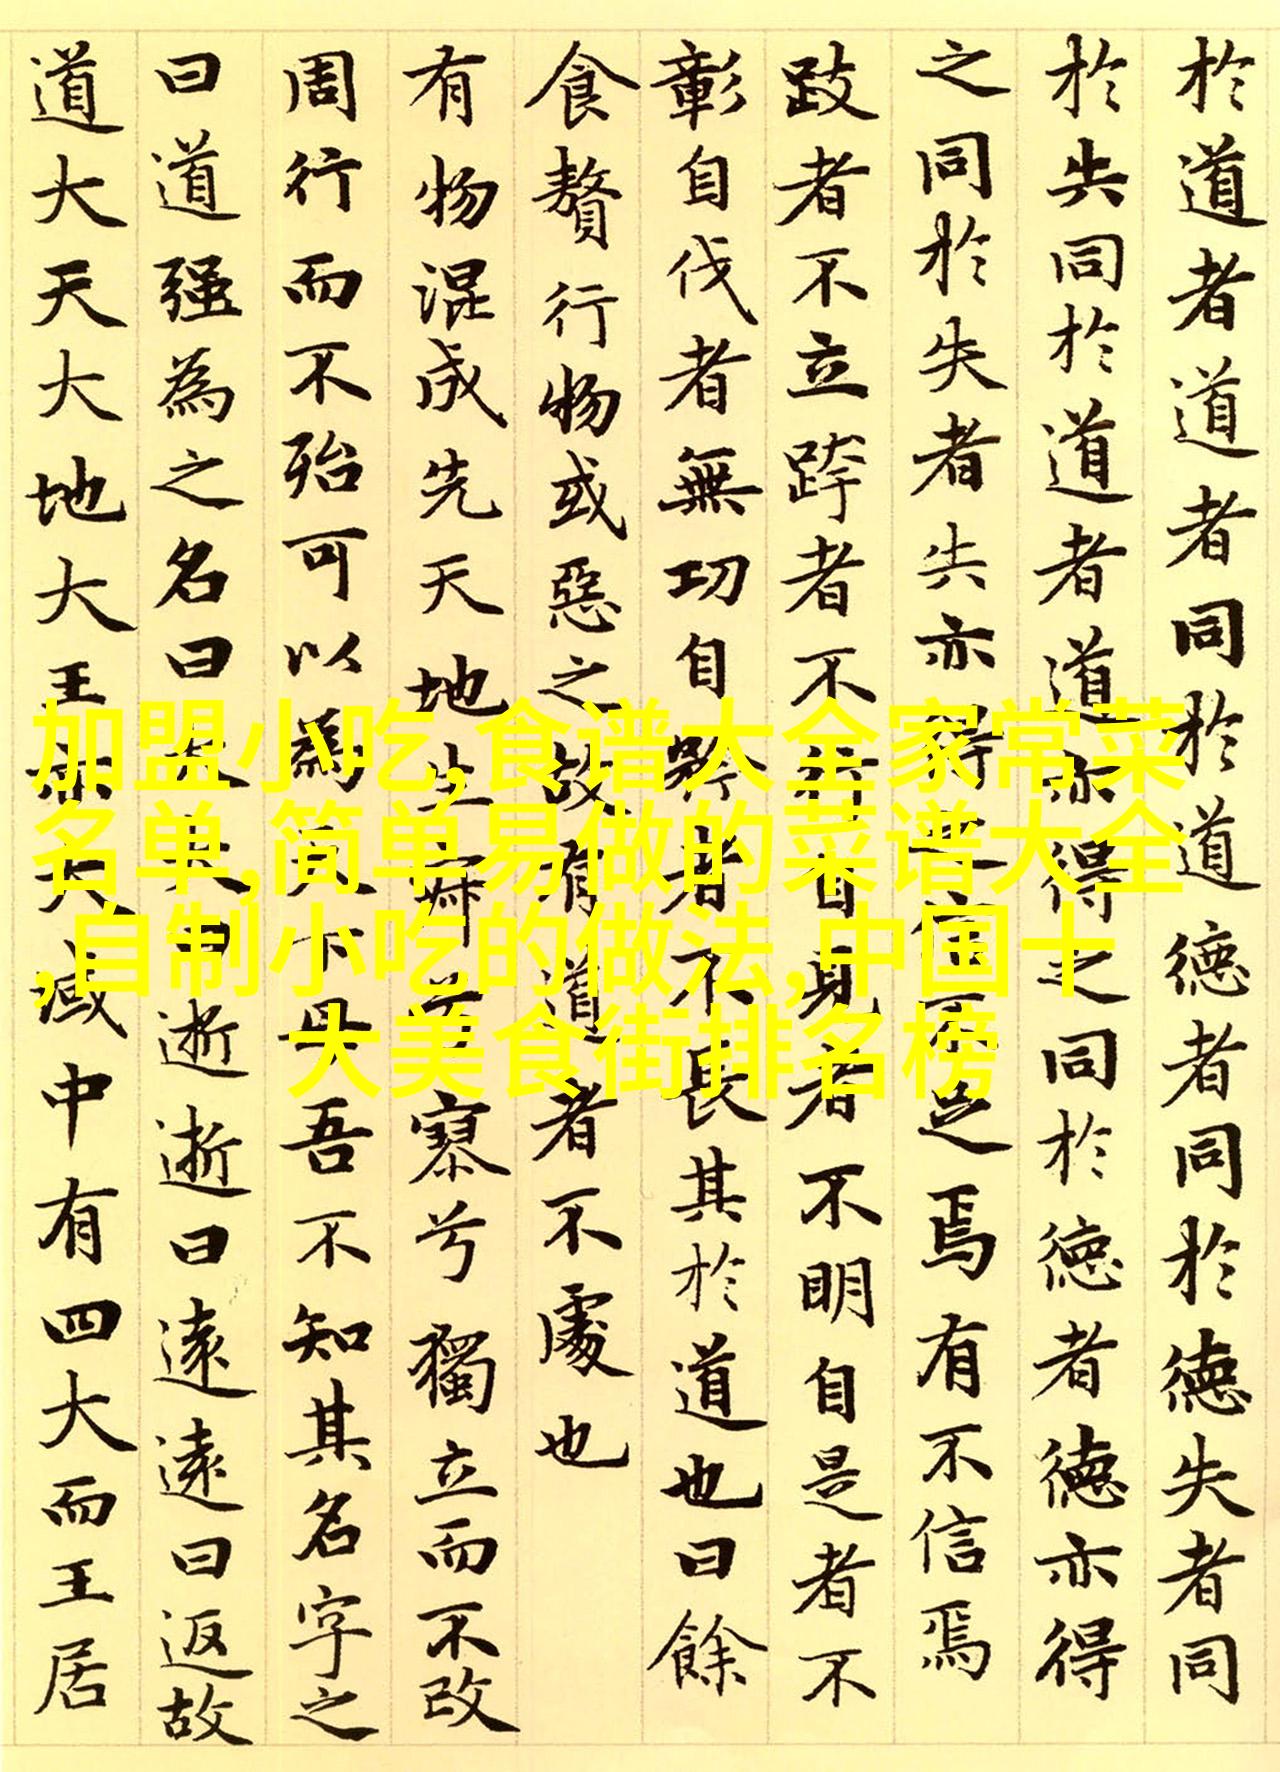 於道者道者同於道德者同於德失者同
於失同於道者道亦得之同於德者德亦得
之同於失者失亦得之信不足焉有不信焉
跂者不立跨者不行自見者不明自是者不
彰自伐者無功自矜者不長其於道也曰餘
食贅行物或惡之故有道者不處也
有物混成先天地生寂兮寥兮獨立而不改
周行而不殆可以為天下母吾不知其名字之
曰道强為之名曰大大曰逝逝曰遠遠曰返故
道大天大地大王亦大域中有四大而王居
加盟小吃,食谱大全家常菜
名单,简单易做的菜谱大全
,自制小吃的做法,中国十
大美食街排名榜